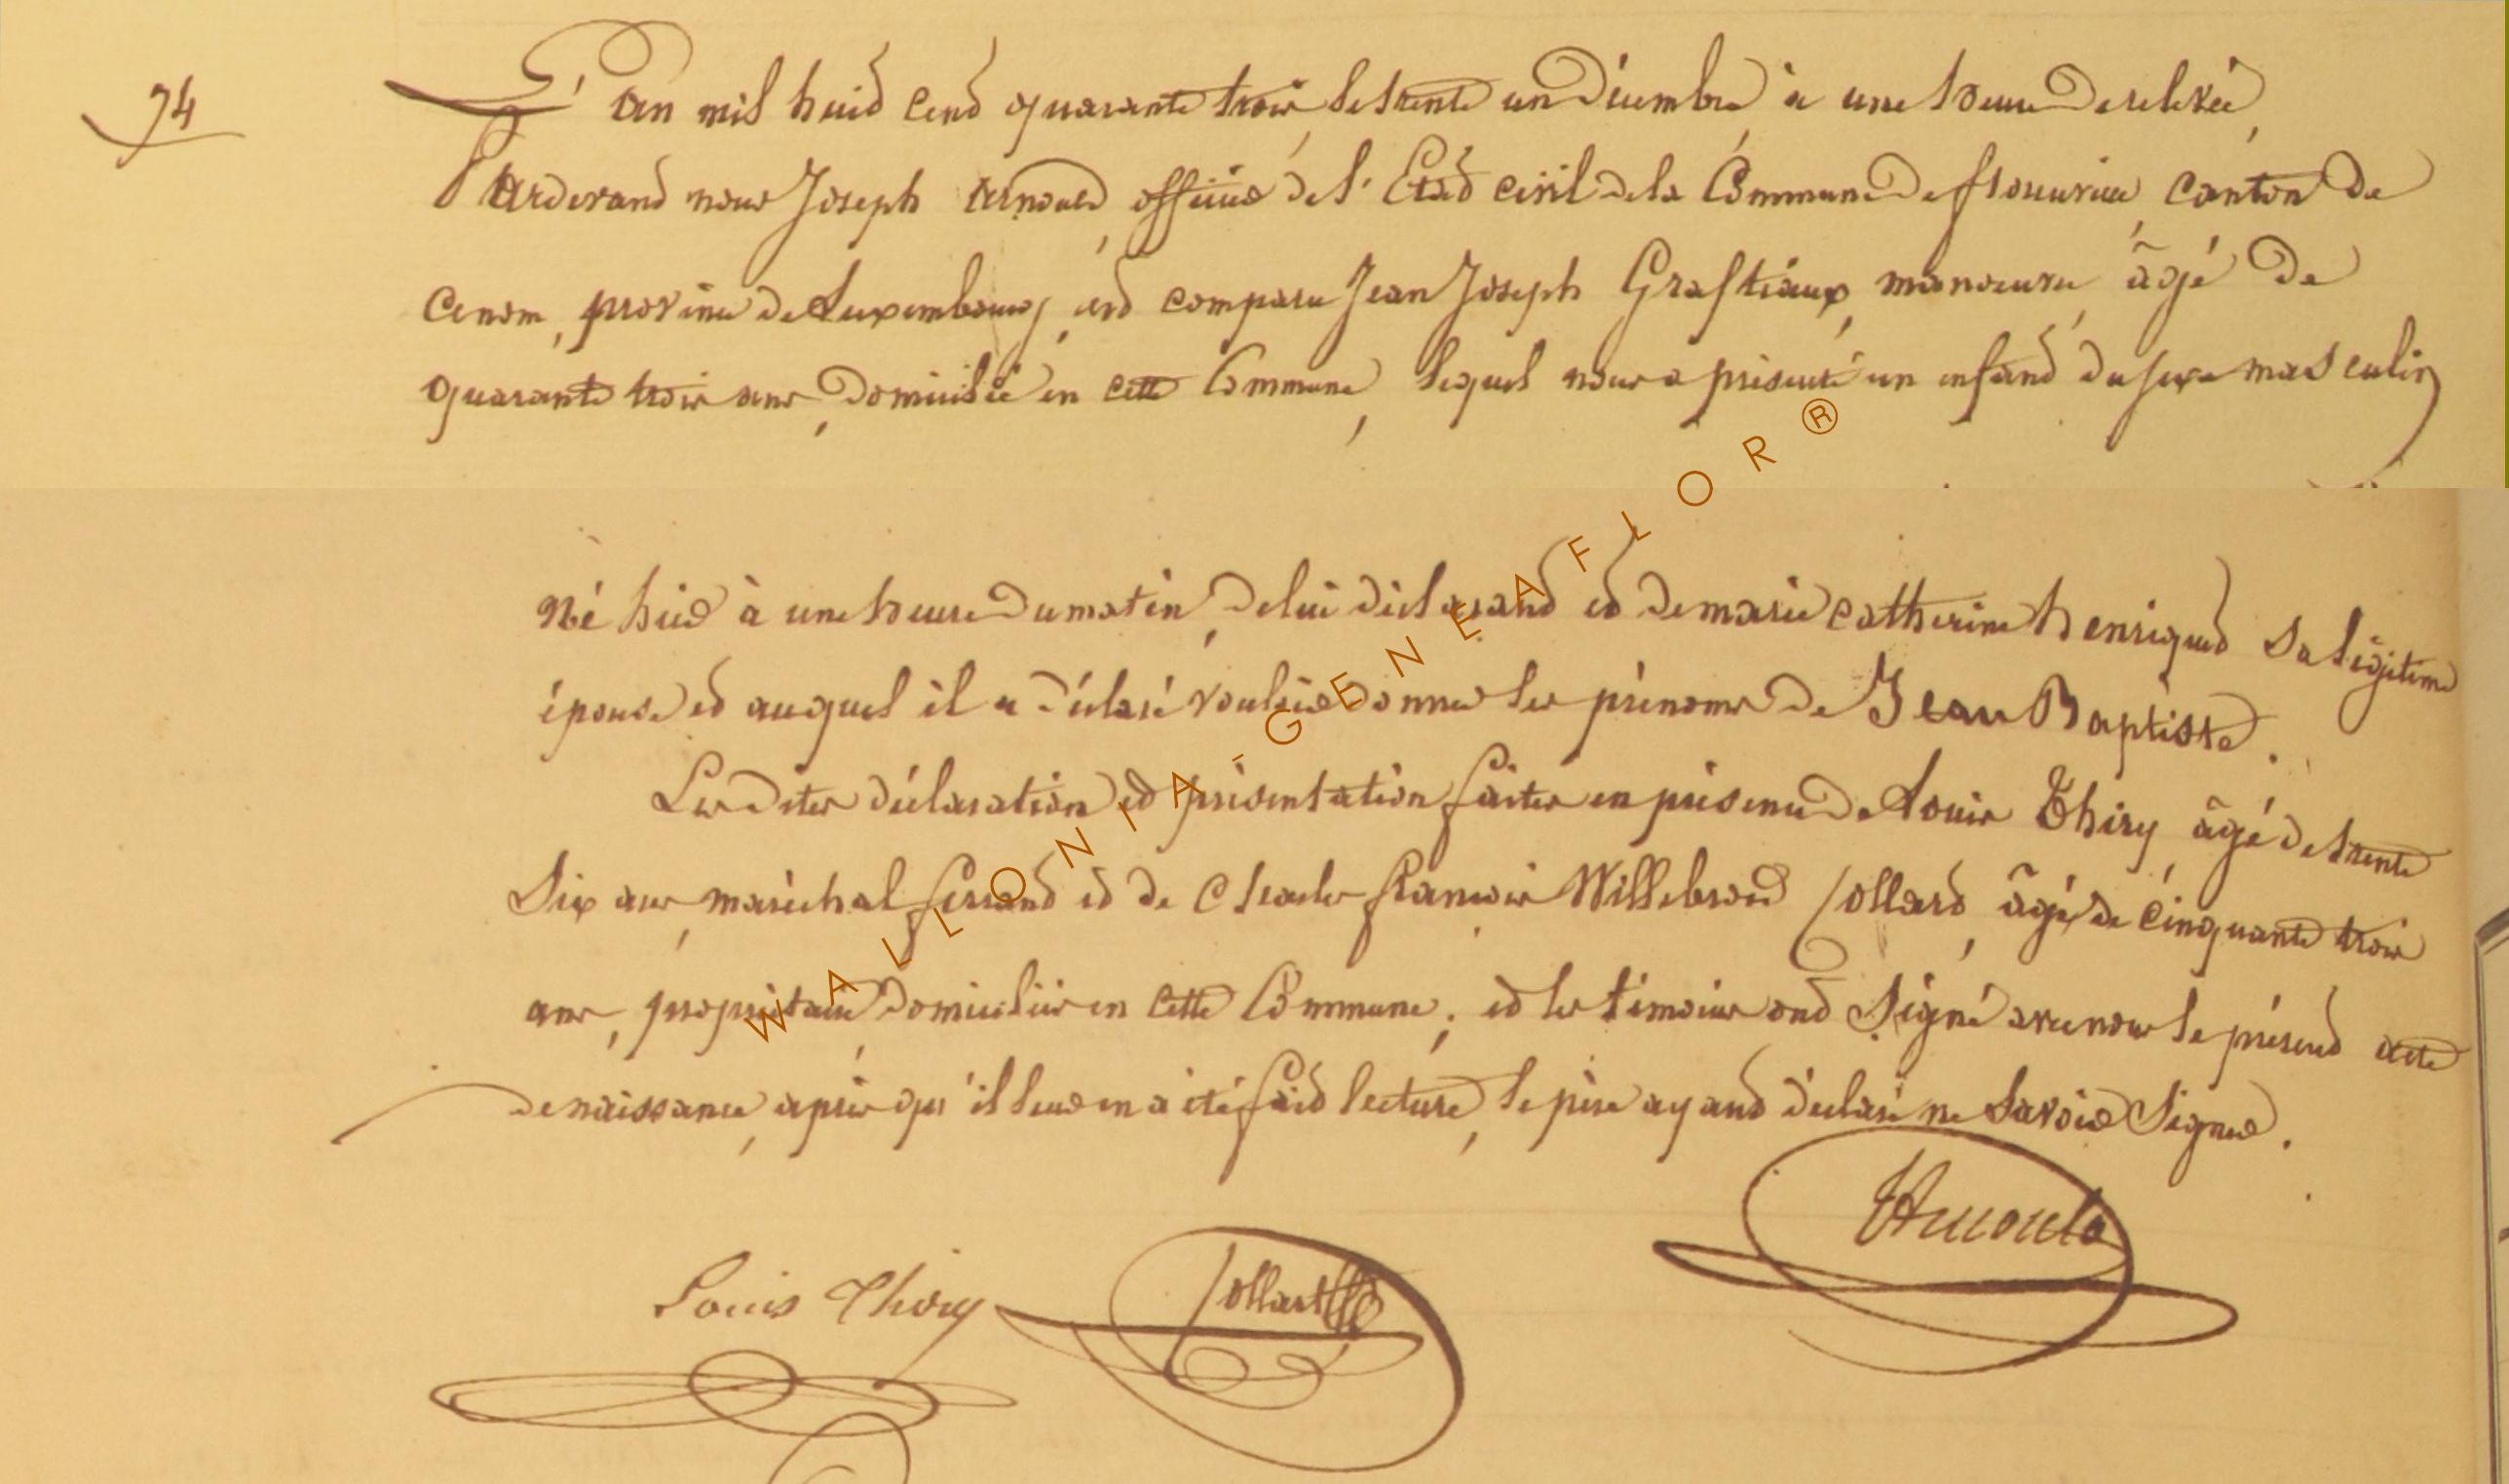 74
L'an mil huit cent quarante trois le trente un Décembre à une heure de relevée,
Pardevant nous Joseph Arnould, officier de l'Etat civil de la Commune de florenville, canton de
province de Luxembourg, est comparu Jean Joseph Grastiaux, manoeuvre, âgé de
quarante trois ans, Domicilié en cette Commune, lequel nous a présenté un enfant du sexe masculin
Né hier à une heure du matin, de lui déclarant et de marie catherine henriquet Sa légitime
épouse et auquel il a déclaré vouloir donner les prénoms de Jean Baptiste.
Les dites déclaration et présentation faites en présence de Louis Thiry, âgé de trente
Six ans, maréchal ferrant et de Charles françois Willebrord Collard, âgé de cinquante trois
ans, propriétaire, domiciliés en cette Commune; et les témoins ont Signé avec nous le présent acte
de naissance, après qu'il leur en a été fait lecture, le père ayant déclaré ne Savoir Signer.
Arnould
Louis Thiry
Collart
WALLONIA-GENEAFLOR®